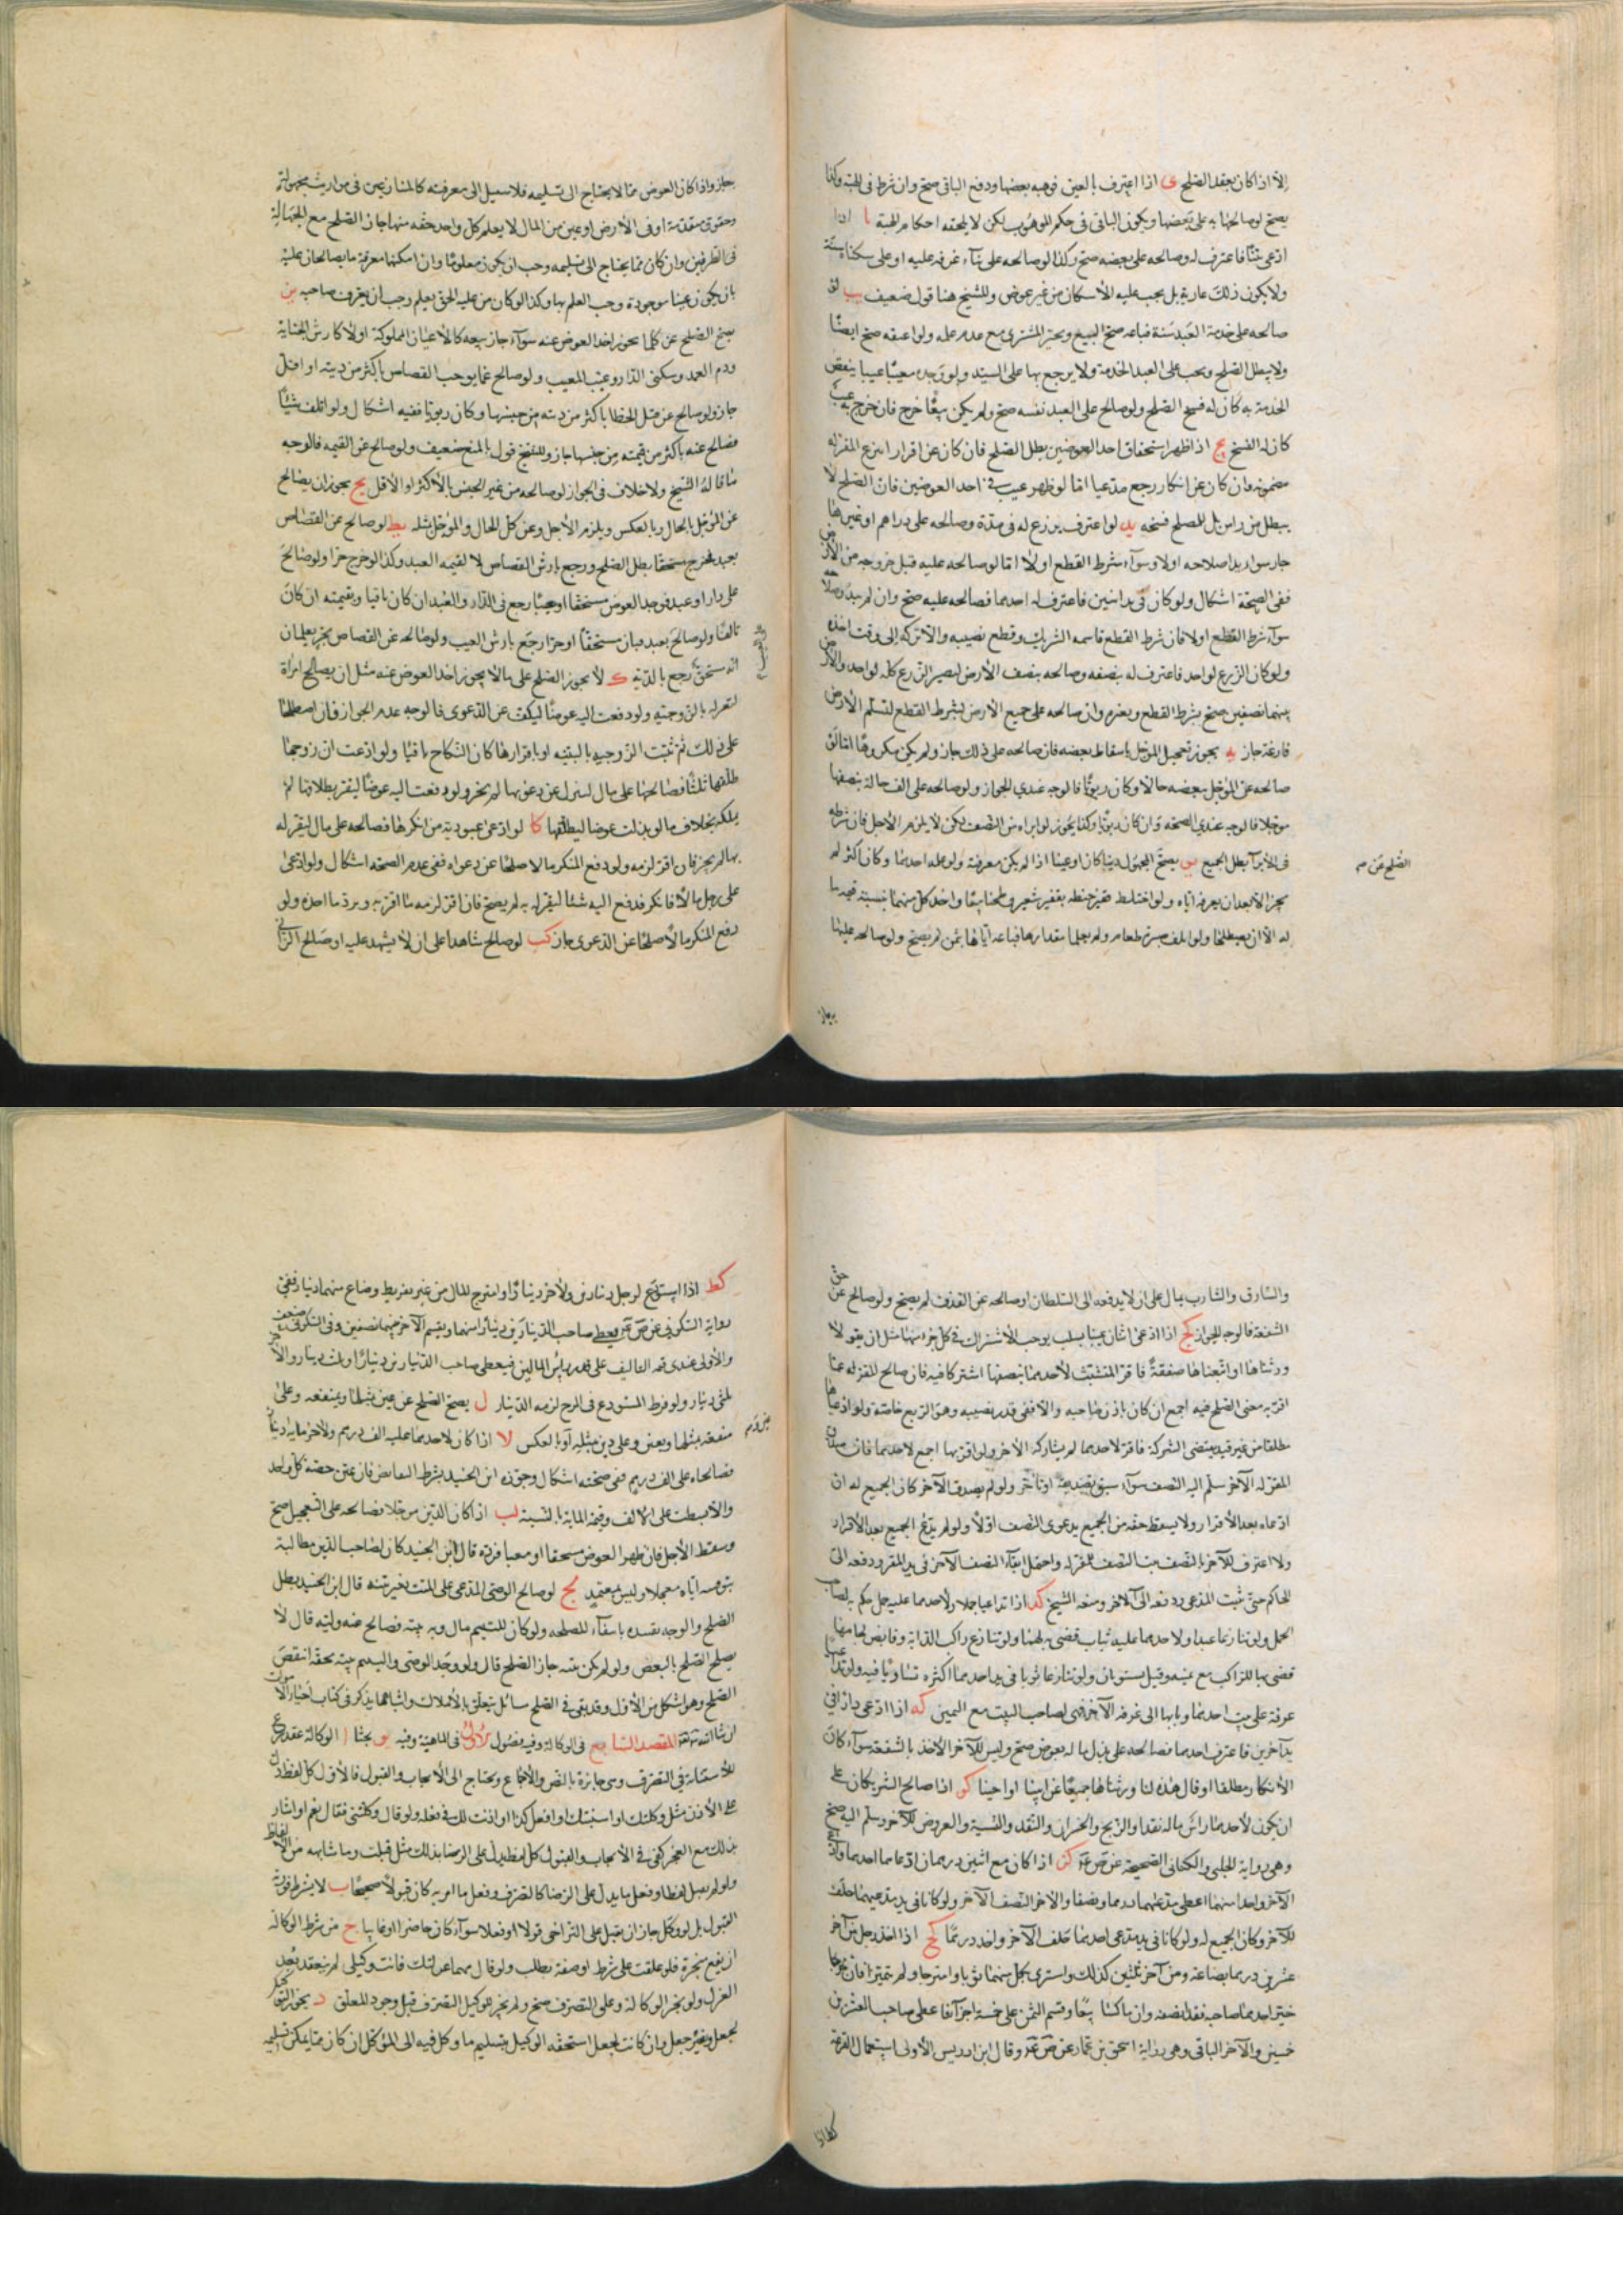 الا اذا كان بعقد الصلح ى اذا اعترف بالعين فوهبه بعضها ودفع الباقي صح وان شرط في الهبة وكذا
يصح لو صالحها به على بعضها ويكون الباقي في حكم الموهوب لكن لا يلحقه احكام الهبة يا اذا
ادعى بيتا فاعترف له وصالحه على بعضه صح وكذا لو صالحه على بناء غرفة عليه او على سكناه سنة
ولا يكون ذلك عارية بل يجب عليه الاسكان من غير عوض وللشيخ هنا قول ضعيف يب لو
صالحه على خدمة العبد سنة فباعه صح البيع ويخير المشتري مع عدم علمه ولو اعتقه صح ايضا
ولا يبطل الصلح ويجب على العبد الخدمة ولا يرجع بها على السيد ولو وجده معيبا عيبا ينقص
الخدمة به كان له فسخ الصلح ولو صالح على العبد نفسه صح ولم يكن بيعا خرج فان خرج به عيب
كان له الفسخ يج اذا ظهر استحقاق احد العوضين بطل الصلح فان كان عن اقرار انتزع المقر له
مضمونه وان كان عن انكار رجع مدعيا اما لو ظهر عيب في احد العوضين فان الصلح لا
يبطل من راس بل للمصلح فسخه يد لو اعترف بزرع له في مدة وصالحه على دراهم او غيرها
جاز سواء بدا صلاحه اولا وسواء شرط القطع اولا اما لو صالحه عليه قبل خروجه من الارض
ففي الصحة اشكال ولو كان في يد اثنين فاعترف له احدهما فصالحه عليه صح وان لم يبد صلاحه
سواء شرط القطع اولا فان شرط القطع قاسمه الشريك وقطع نصيبه والا تركه الى وقت اخذه
ولو كان الزرع لواحد فاعترف له بنصفه وصالحه بنصف الارض ليصير الزرع كله لواحد والارض
بينهما نصفين صح بشرط القطع وبعدم وان صالحه على جميع الارض بشرط القطع لتسلم الارض
فارغة جاز يه يجوز تعجيل المؤجل باسقاط بعضه فان صالحه على ذلك جاز ولم يكن مكروها اما لو
صالحه عن المؤجل ببعضه حالا وكان ربويا فالوجه عندي الجواز ولو صالحه على الف حالة بنصفها
مؤجلا فالوجه عندي الصحة وان كان ربويا وكذا يجوز لو ابراه من النصف لكن لا يلزم الاجل فان شرطه
في الابراء بطل الجميع يو يصح المجهول دينا كان او عينا اذا لم يكن معرفته ولو علمه احدهما وكان اكثر لم
الصلح عن صح
يجز الا بعد ان يعرفه اياه ولو اختلط قفيز حنطة بقفيز شعير وطحنا بيعا واخذ كل منهما بنسبة قيمة ما
له الا ان يصطلحا ولو اتلف صبرة طعام ولم يعلما مقدارها فباعه اياها بثمن لم يصح ولو صالحه عليها
جاز واذا كان العوض مما لا يحتاج الى تسليمه فلا سبيل الى معرفته كالمتنازعين في مواريث مجهولة
وحقوق متقدمة او في الارض او عين من المال لا يعلم كل واحد حقه منها جاز الصلح مع الجهالة
في الطرفين وان كان مما يحتاج الى تسليمه وجب ان يكون معلوما وان امكنهما معرفة ما يصالحان عليه
بان يكون عينا موجودة وجب العلم بها وكذا لو كان من عليه الحق يعلم وجب ان يعرف صاحبه يز
يصح الصلح عن كلما يجوز اخذ العوض عنه سواء جاز بيعه كالاعيان المملوكة اولا كارش الجناية
ودم العمد وسكنى الدار وعيب المعيب ولو صالح عما يوجب القصاص باكثر من ديته او اقل
جاز ولو صالح عن قتل الخطا باكثر من ديته من جنسها وكان ربويا ففيه اشكال ولو اتلف شيئا
فصالح عنه باكثر من قيمته من جنسها جاز وللشيخ قول بالمنع ضعيف ولو صالح عن القيمة فالوجه
ما قاله الشيخ ولا خلاف في الجواز لو صالحه من غير الجنس بالاكثر او الاقل يح يجوز ان يصالح
عن المؤجل بالحال وبالعكس ويلزم الاجل وعن كل الحال والمؤجل بمثله يط لو صالح عن القصاص
بعبد فخرج مستحقا بطل الصلح ورجع بارش القصاص لا لقيمة العبد وكذا لو خرج حرا ولو صالح
على دار او عبد فوجد العوض مستحقا او معيبا رجع في الدار والعبد ان كان باقيا وبقيمته ان كان
تالفا ولو صالح بعبد فبان مستحقا او حرا رجع بارش العيب ولو صالحه عن القصاص بحر يعلمان
انه مستحق رجع بالدية ك لا يجوز الصلح على ما لا يجوز اخذ العوض عنه مثل ان يصالح امراة
لتقر له بالزوجية ولو دفعت اليه عوضا ليكف عن الدعوى فالوجه عدم الجواز فان اصطلحا
على ذلك ثم ثبتت الزوجية بالبينة او باقرارها كان النكاح باقيا ولو ادعت ان زوجها
طلقها ثلثا فصالحها على مال لتنزل عن دعويها لم يجز ولو دفعت اليه عوضا ليقر بطلاقها لم
يملكه بخلاف ما لو بذلت عوضا ليطلقها كا لو ادعى عبودية من انكرها فصالحه على مال ليقر له
بها لم يجز فان اقر لزمه ولو دفع المنكر مالا صلحا عن دعواه ففي عدم الصحة اشكال ولو ادعى
على رجل مالا فانكر فدفع اليه شيئا ليقر له به لم يصح فان اقر لزمه ما اقر به ويرد ما اخذه ولو
دفع المنكر مالا صلحا عن الدعوى جاز كب لو صالح شاهدا على ان لا يشهد عليه او صالح الزاني
والسارق والشارب بمال على ان لا يدفعه الى السلطان او صالحه عن القذف لم يصح ولو صالح عن حق
الشفعة فالوجه الجواز كج اذا ادعى اثنان عينا بسبب يوجب الاشتراك في كل جزء منهما مثل ان يقولا
ورثناها او ابتعناها صفقة فاقر المتشبث لاحدهما بنصفها اشتركا فيه فان صالح المقر له عما
اقر به معنى الصلح فيه اجمع ان كان باذن صاحبه والا ففي قدر نصيبه وهو الربع خاصة ولو ادعياها
مطلقا من غير قيد يقتضي الشركة فاقر لاحدهما لم يشاركه الاخر ولو اقر بها اجمع لاحدهما فان صدق
المقر له الاخر سلم اليه النصف سواء سبق تصديقه او تاخر ولو لم يصدق الاخر كان الجميع له ان
ادعاه بعد الاقرار ولا يسقط حقه من الجميع بدعوى النصف اولا ولو لم يدع الجميع بعد الاقرار
ولا اعترف للآخر بالنصف ثبت النصف للمقر له واحتمل ابقاء النصف الآخر في يد المقر ودفعه الى
الحاكم حتى يثبت المدعى ودفعه الى الاخر ومنعه الشيخ كد اذا تداعيا جملا ولاحدهما عليه حمل حكم به لصاحب
الحمل ولو تنازعا عبدا ولاحدهما عليه ثياب قضى به لهما ولو تنازع راكب الدابة وقابض لجامها
قضى بها للراكب مع يمينه وقيل يستويان ولو تنازعا ثوبا في يد احدهما اكثره تساويا فيه ولو تداعيا
غرفة على بيت احدهما وبابها الى غرفة الآخر قضى لصاحب البيت مع اليمين كه اذا ادعى دارا في
يد آخرين فاعترف احدهما فصالحه على بذل ماله بعوض صح وليس للآخر الاخذ بالشفعة سواء كان
الانكار مطلقا او قال هذه لنا ورثناها جميعا عن ابينا او اخينا كو اذا صالح الشريكان على
ان يكون لاحدهما راس ماله نقدا والربح والخسران والنقد والنسية والعروض للآخر وسلم اليه صح
وهي رواية الحلبي والكناني الصحيحة عن ص ع كز اذا كان مع اثنين درهمان ادعاهما احدهما وادعى
الآخر واحدا منهما اعطي مدعيهما درهما ونصفا والآخر النصف الآخر ولو كانا في يد مدعيهما حلف
للآخر وكان الجميع له ولو كانا في يد مدعي احدهما حلف الآخر واخذ درهما كح اذا اخذ رجل من آخر
عشرين درهما بضاعة ومن آخر ثلثين كذلك واشترى بكل منهما ثوبا وامتزجا ولم يتميزا فان
خير احدهما صاحبه فقد انصفه وان تماكسا بيعا وقسم الثمن على خمسة اجزاء فاعطى صاحب العشرين
خمسين والآخر الباقي وهي رواية اسحق بن عمار عن ص ع وقال ابن ادريس الاولى استعمال القرعة
كط اذا
كط اذا استودع لرجل دينارين ولآخر دينارا وامتزج المال من غير تفريط وضاع منهما دينار ففي
رواية السكوني عن ص ع يعطى صاحب الدينارين دينارا منهما ويقسم الآخر بينهما نصفين وفي السكوني ضعف
والاولى عندي قسمة التالف على قدر راس المالين فيعطى صاحب الدينارين دينارا وثلث دينار والآخر
ثلثي دينار ولو فرط المستودع في المزج لزمه الدينار ل يصح الصلح عن عين بمثلها وبمنفعة وعلى
منفعة بمثلها وبعين وعلى دين بمثله او بالعكس لا اذا كان لاحدهما عليه الف درهم ولآخر ماية دينار
فصالحاه على الف درهم ففي صحته اشكال وجوزه ابن الجنيد بشرط التقابض فان تعين حصة كل واحد
والا بسطت على الالف وقيمة الماية بالنسبة لب اذا كان الدين مؤجلا فصالحه على التعجيل صح
وسقط الاجل فان ظهر العوض مستحقا او معيبا فرده قال ابن الجنيد كان لصاحب الدين مطالبة
بتوفيته اياه معجلا وليس بمعتمد لج لو صالح الوصي المدعي على الميت بغير بينة قال ابن الجنيد بطل
الصلح والوجه تقييده بانتفاء المصلحة ولو كان لليتيم مال وبه بينة فصالح عنه وليه قال لا
يصلح الصلح بالبعض ولو لم يكن بينة جاز الصلح قال ولو وجد الوصي واليتيم بينة بحقه انتقض
الصلح وهو اشكل من الاول وقد بقى في الصلح مسائل تتعلق بالاملاك واشباهها يذكر في كتاب احياء الاموات
ان شاء الله تعالى المقصد السابع في الوكالة وفيه فصول الاول في الماهية وفيه يو بحثا ا الوكالة عقد شرع
للاستنابة في التصرف وهي جايزة بالنص والاجماع وتحتاج الى الايجاب والقبول فالاول كل لفظ دل
على الاذن مثل وكلتك او استنبتك او افعل كذا او اذنت لك في فعله ولو قال وكلتني فقال نعم او اشار
بذلك مع العجز كفى في الايجاب والقبول كل لفظ يدل على الرضا بذلك مثل قبلت وما شابهه من الالفاظ
ولو لم يقبل لفظا وفعل ما يدل على الرضا كالتصرف وفعل ما امر به كان قبولا صحيحا ب لا يشترط فورية
القبول بل لو وكل جاز ان يقبل على التراخي قولا او فعلا سواء كان حاضرا او غايبا ج من شرط الوكالة
ان يقع منجزة فلو علقت على شرط او صفة بطلت ولو قال مهما عزلتك فانت وكيلي لم ينعقد بعد
العزل ولو نجز الوكالة وعلق التصرف صح ولم يجز للوكيل التصرف قبل وجود المعلق د يجوز التوكيل
بجعل وبغير جعل وان كانت بجعل استحقه الوكيل بتسليم ما وكل فيه الى الموكل ان كان مما يمكن تسليمه